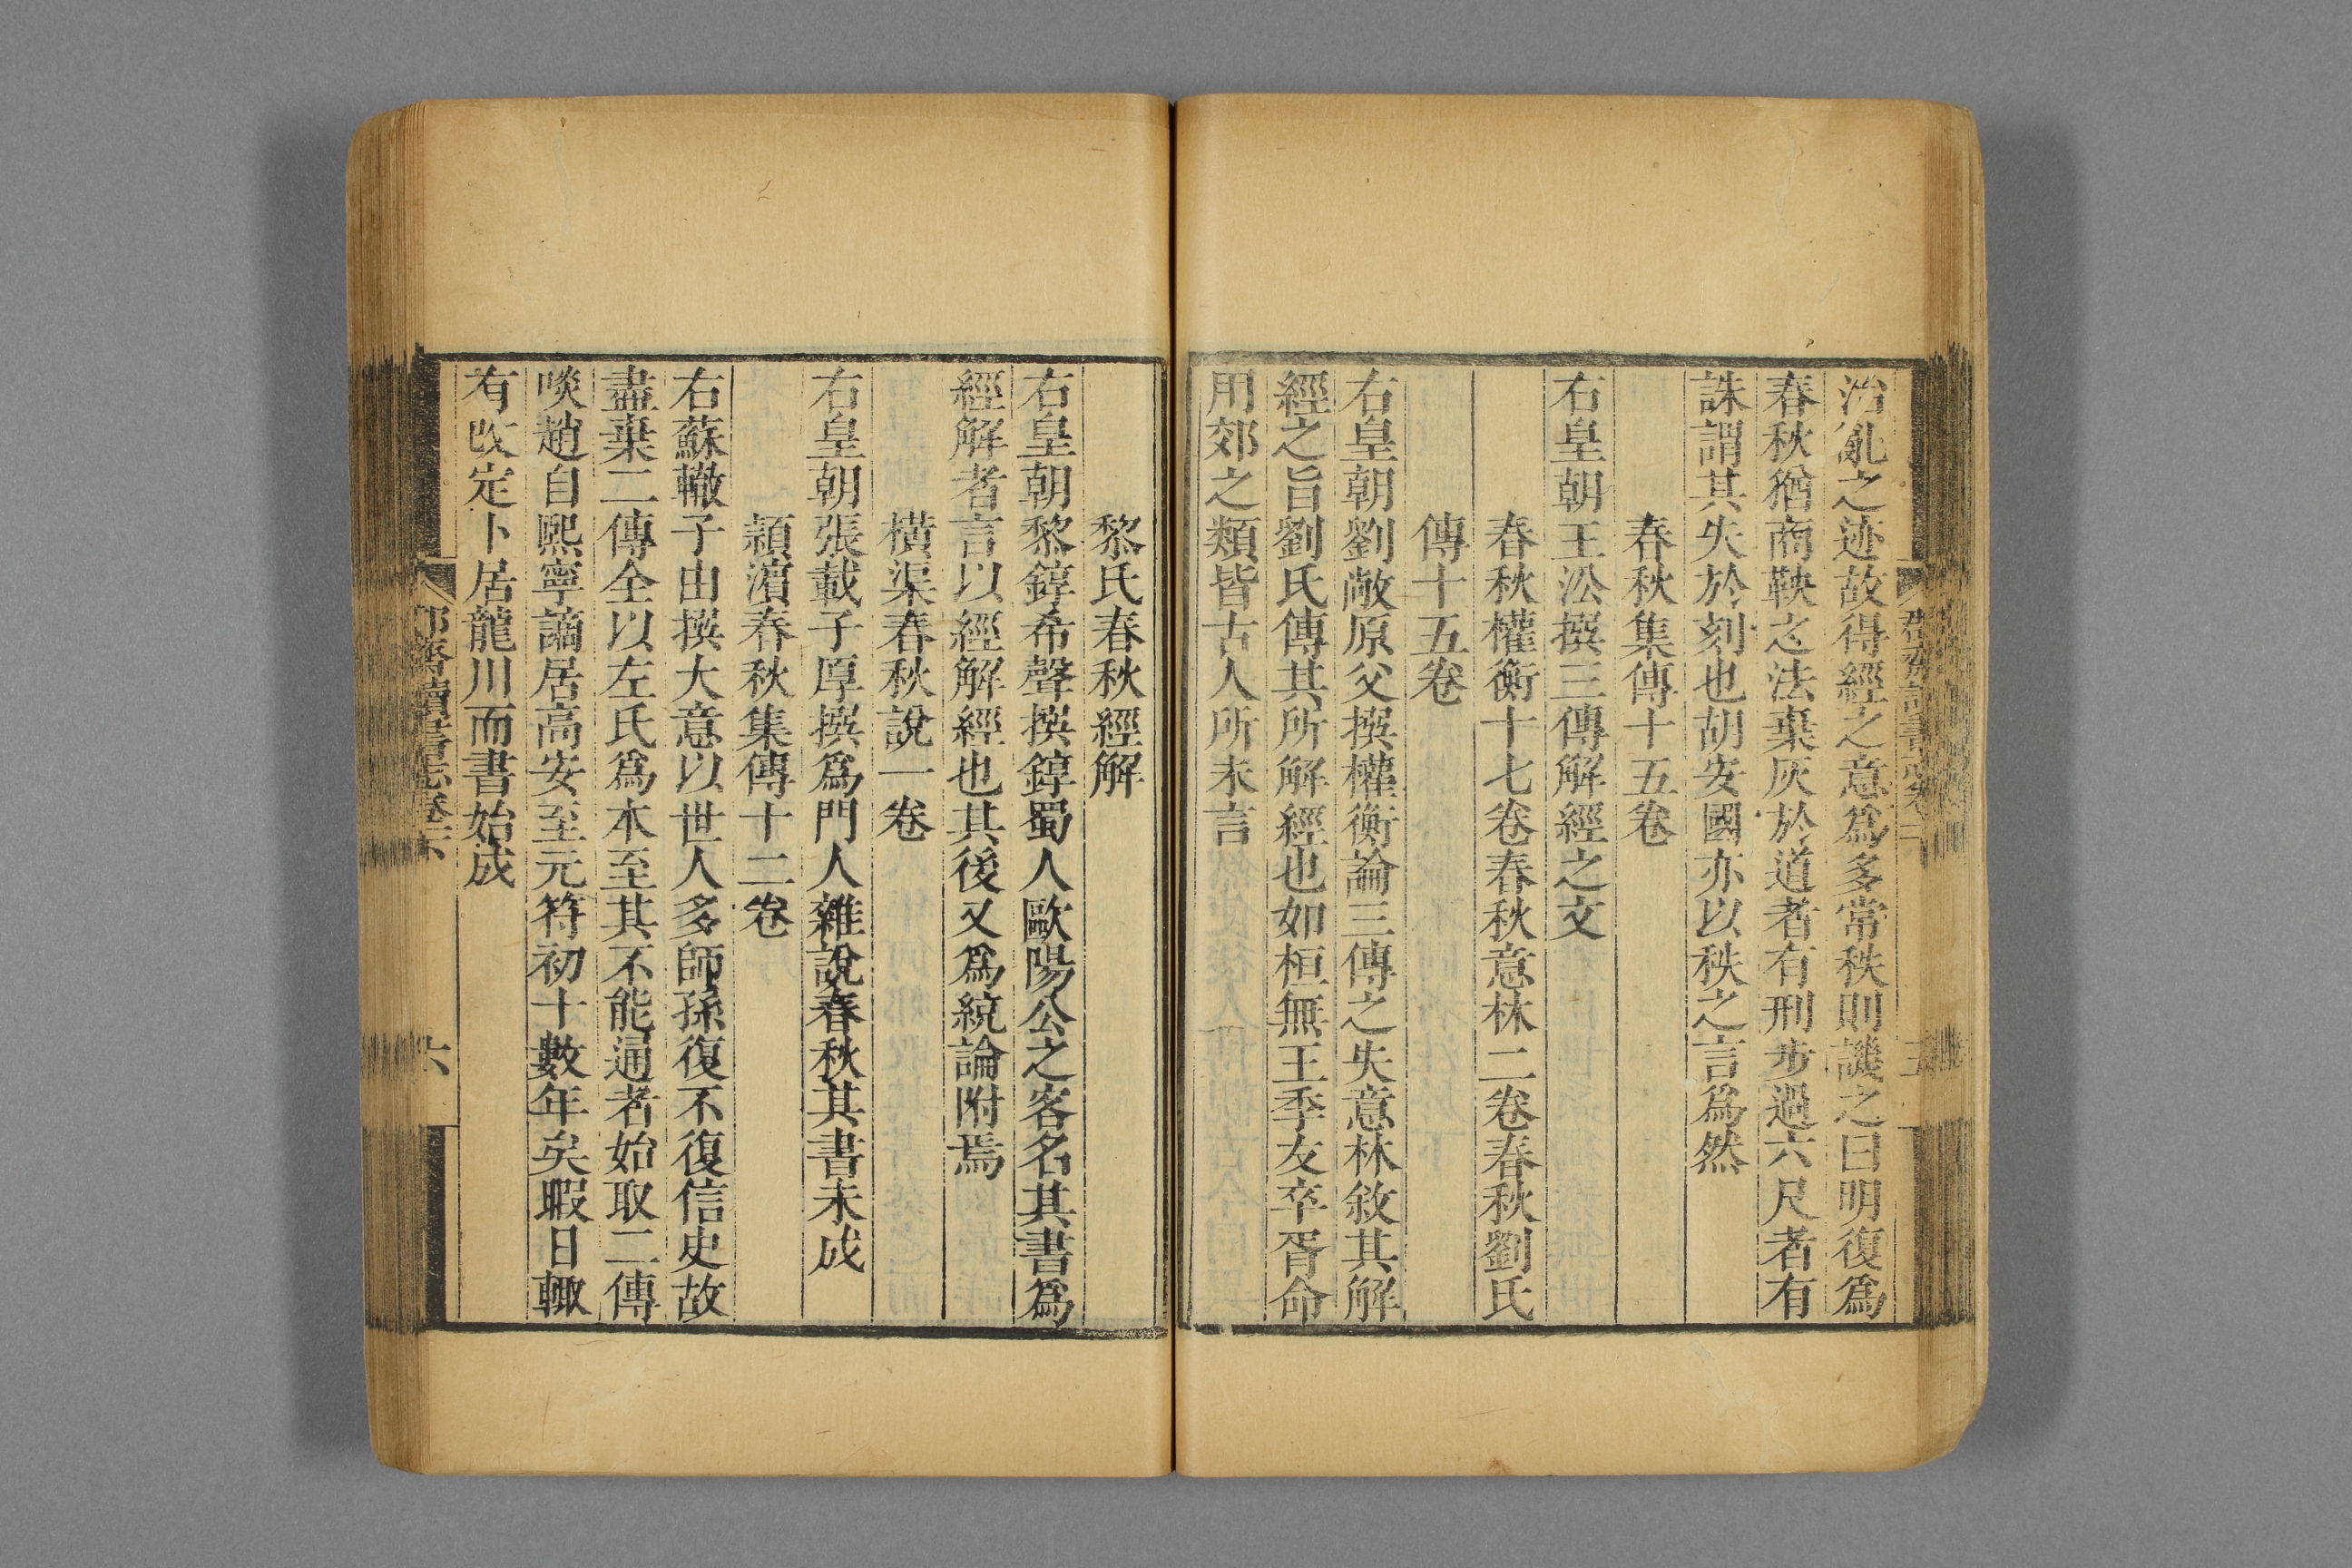 治亂之迹故得經之意爲多常秩則譏之曰明復爲
春秋猶商鞅之法棄灰於道者有刑步過六尺者有
誅謂其失於刻也胡安國亦以秩之言爲然
春秋集傳十五卷
右皇朝王沿撰三傳解經之文
春秋權衡十七卷春秋意林二卷春秋劉氏
傳十五卷
右皇朝劉敞原父撰權衡論三傳之失意林敘其解
經之旨劉氏傳其所解經也如桓無王季友卒胥命
用郊之類皆古人所未言
黎氏春秋經解
右皇朝黎錞希聲撰錞蜀人歐陽公之客名其書爲
經解者言以經解經也其後又爲統論附焉
橫渠春秋說一卷
右皇朝張載子厚撰爲門人雜說春秋其書未成
潁濵春秋集傳十二卷
右蘇轍子由撰大意以世人多師孫復不復信史故
盡棄二傳全以左氏爲本至其不能通者始取二傳
啖趙自熙寧謫居高安至元符初十數年矣暇日輙
有改定卜居龍川而書始成
六